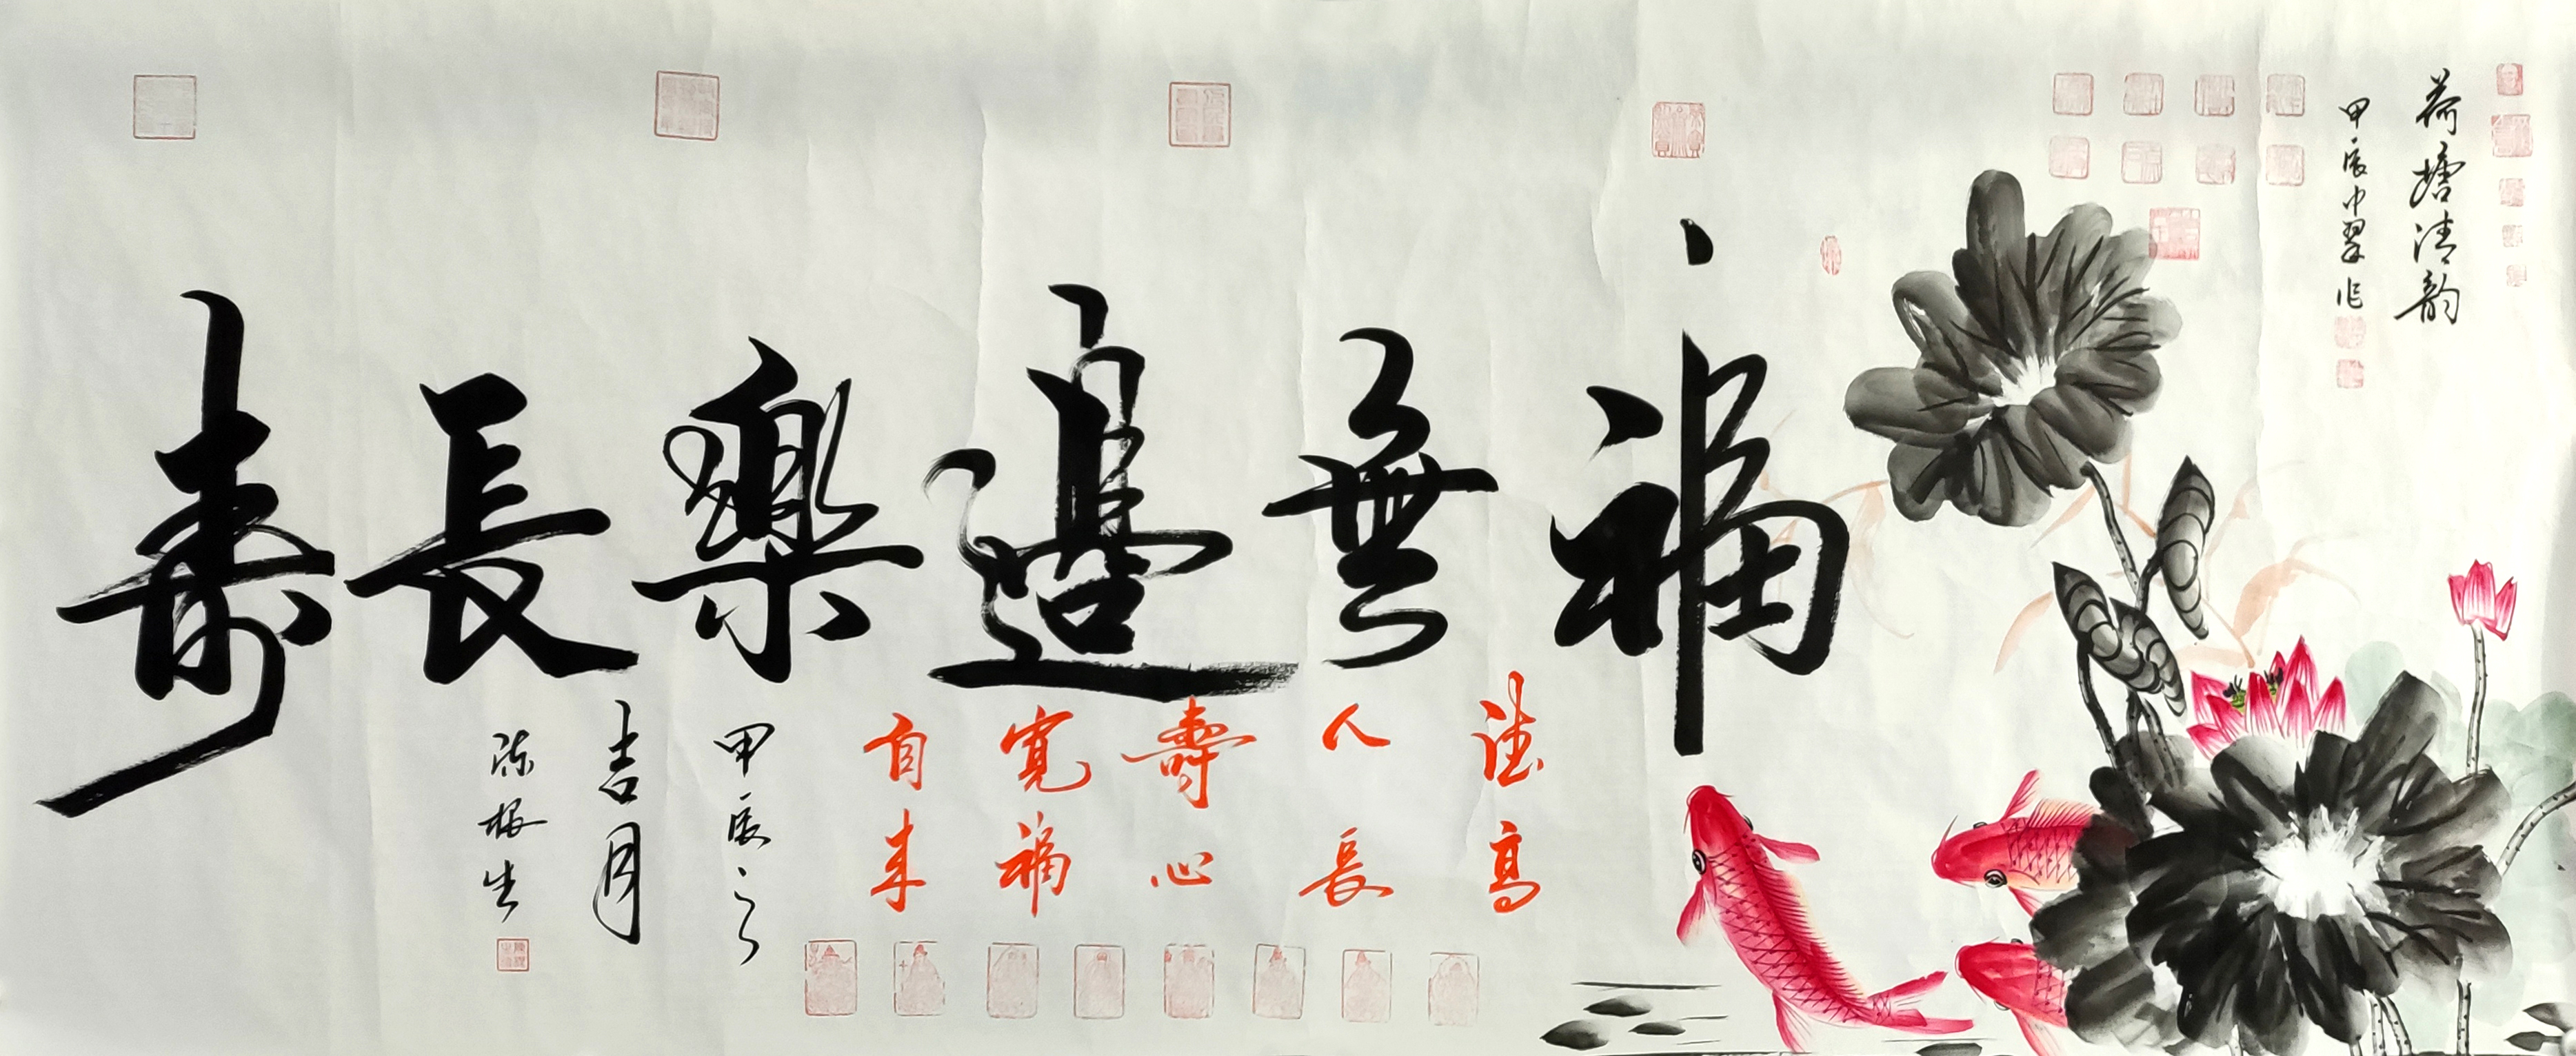 荷塘清韵
甲辰中翠作
福無邊樂長寿
德高
人長
壽心
寬福
自来
甲辰之
吉月
陈根生